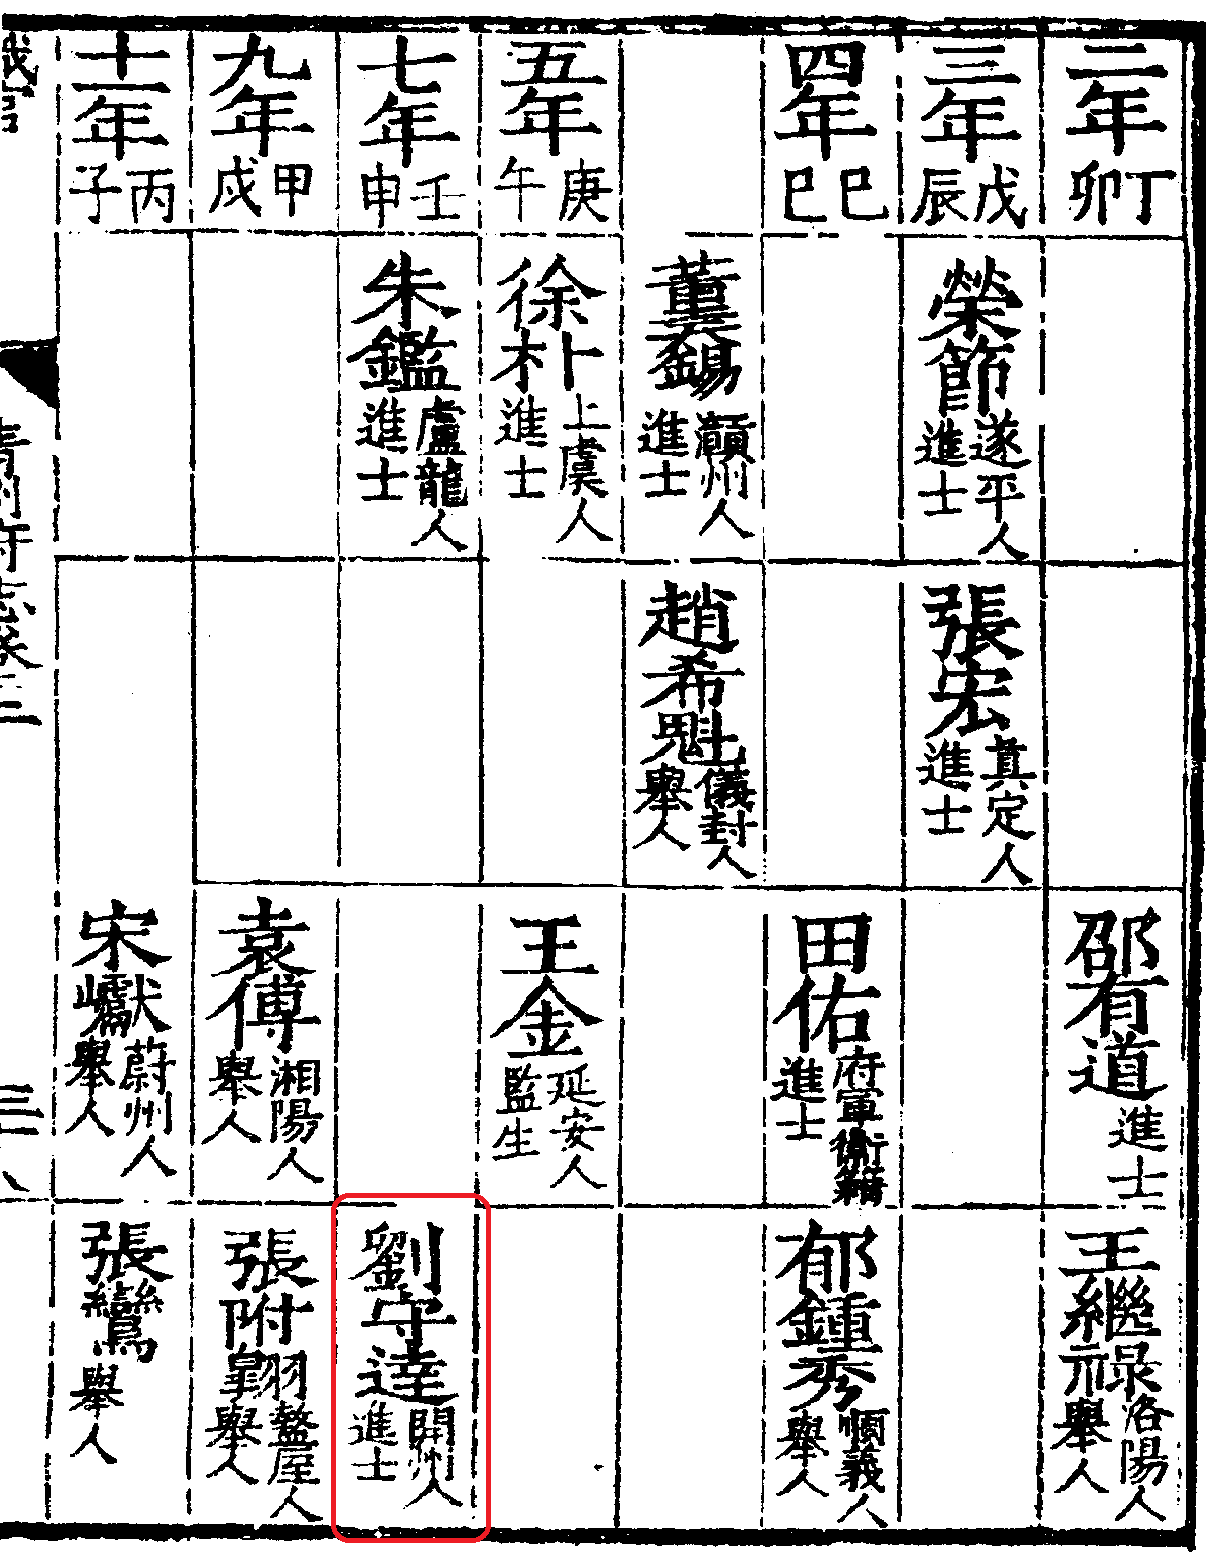 二年丁卯
邵有道進士
王繼祿洛陽人舉人
三年戊辰
榮節遂平人進士
張宏真定人進士
四年己巳
田佑府軍衛籍進士
郁鍾秀順義人舉人
董錫潁州人進士
趙希魁儀封人舉人
五年庚午
徐朴上虞人進士
王金延安人監生
七年壬申
朱鑑盧龍人進士
劉守達開州人進士
九年甲戌
袁傅湘陽人舉人
張附翱盩厔人舉人
十一年丙子
宋巘蔚州人舉人
張鸞舉人
青州府志卷三